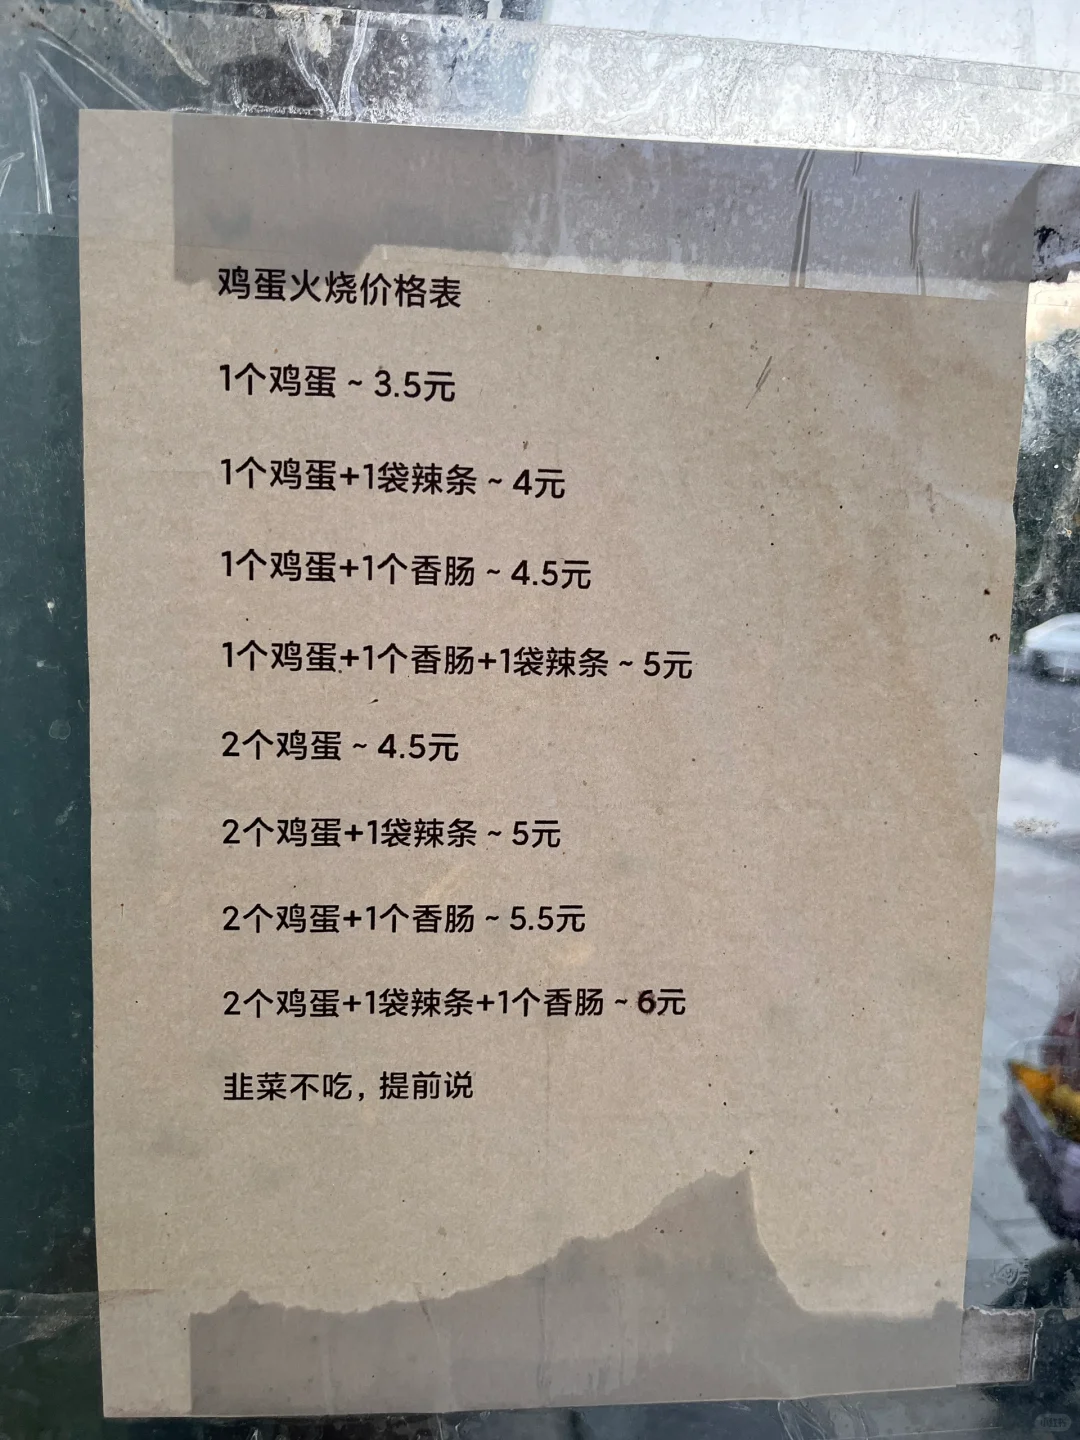 鸡蛋火烧价格表
1个鸡蛋 ~ 3.5元
1个鸡蛋+1袋辣条 ~ 4元
1个鸡蛋+1个香肠 ~ 4.5元
1个鸡蛋+1个香肠+1袋辣条 ~ 5元
2个鸡蛋 ~ 4.5元
2个鸡蛋+1袋辣条 ~ 5元
2个鸡蛋+1个香肠 ~ 5.5元
2个鸡蛋+1袋辣条+1个香肠 ~ 6元
韭菜不吃，提前说
小红书